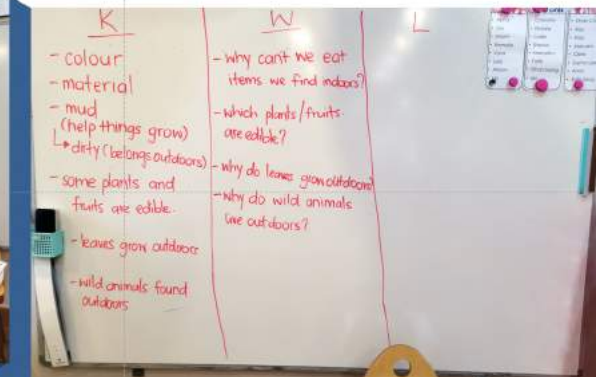 K
- colour
- material
- mud
(help things grow)
↳ dirty (belongs outdoors)
- some plants and
fruits are edible.
- leaves grow outdoors
- wild animals found
outdoors
W
- why can't we eat
items we find indoors?
- which plants/fruits
are edible?
- why do leaves grow outdoors?
- why do wild animals
live outdoors?
L